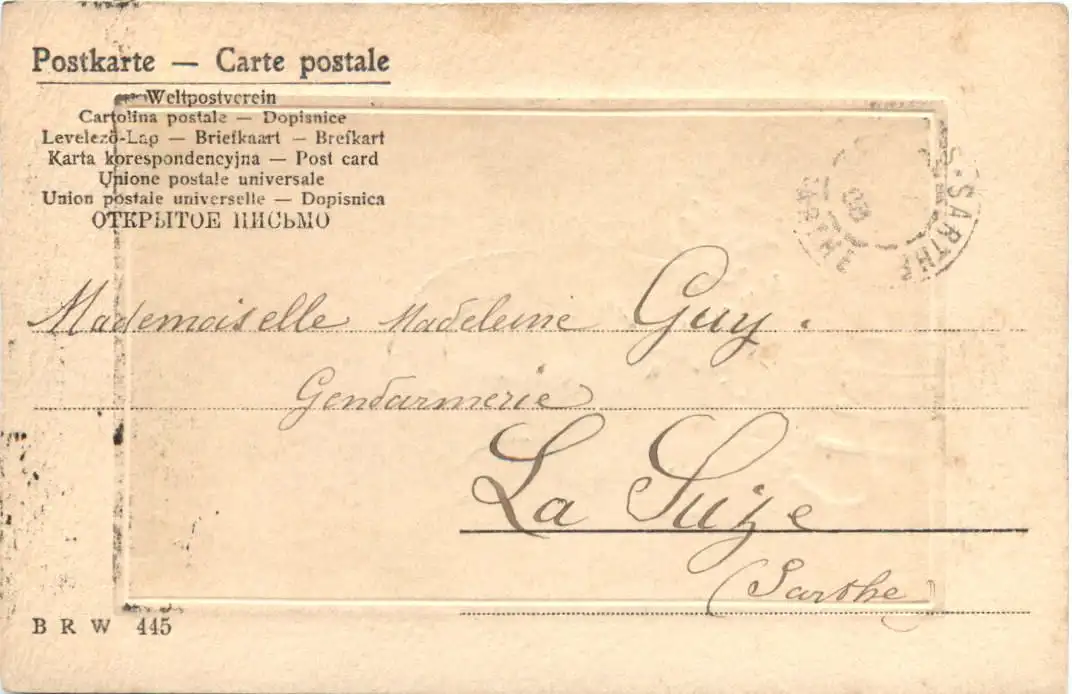 Postkarte — Carte postale
Weltpostverein
Cartolina postale — Dopisnice
Levelező-Lap — Briefkaart — Brefkart
Karta korespondencyjna — Post card
Unione postale universale
Union postale universelle — Dopisnica
ОТКРЫТОЕ ПИСЬМО
S-SARTHE
SARTHE
08
Mademoiselle Madeleine Guy.
Gendarmerie
La Suze
(Sarthe)
B R W 445